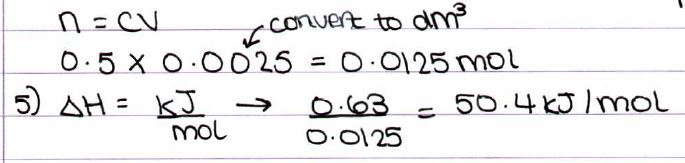 n = CV
convert to dm³
0.5 × 0.0025 = 0.0125 mol
5) ΔH = kJ/mol → 0.63/0.0125 = 50.4 kJ/mol